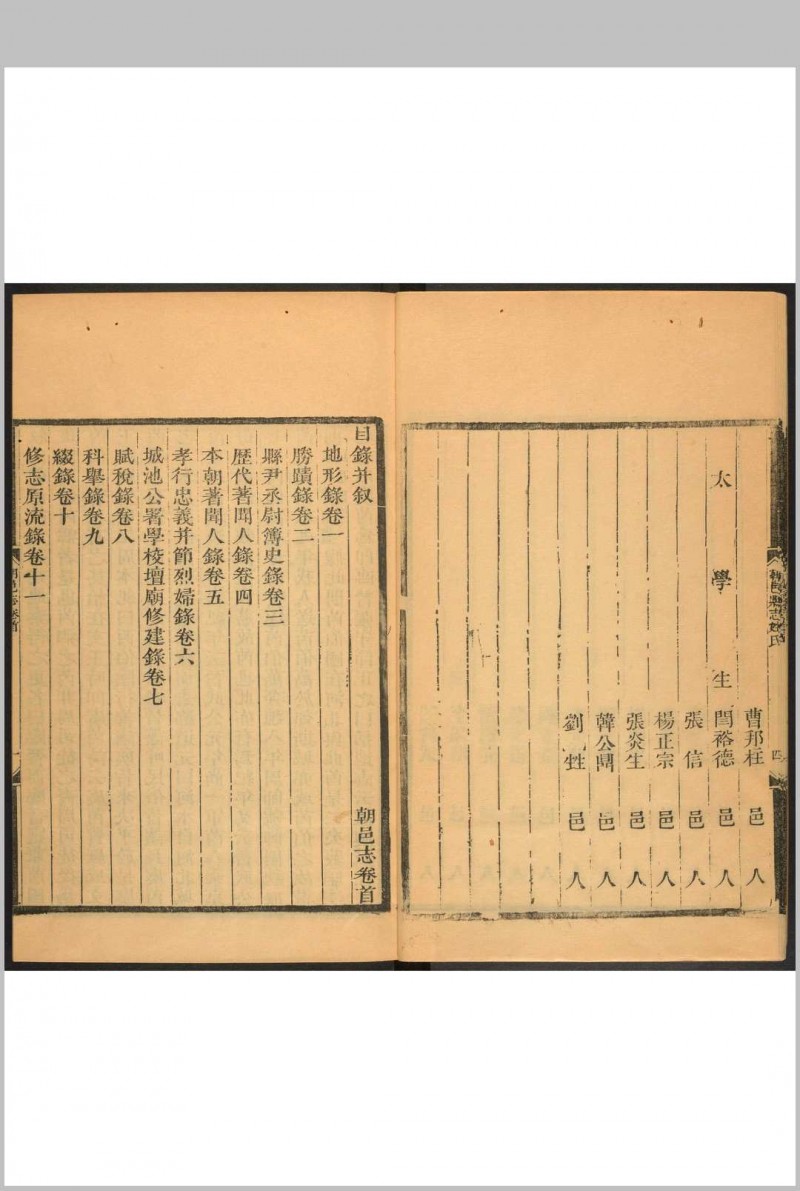 曹邦柱 邑 人
太 學 生 閆裕德 邑 人
張 信 邑 人
楊正宗 邑 人
張炎生 邑 人
韓公鼎 邑 人
劉 甡 邑 人
目錄并叙 朝邑志卷首
地形錄卷一
勝蹟錄卷二
縣尹丞尉簿史錄卷三
歷代著聞人錄卷四
本朝著聞人錄卷五
孝行忠義并節烈婦錄卷六
城池公署學校壇廟修建錄卷七
賦稅錄卷八
科舉錄卷九
綴錄卷十
修志原流錄卷十一